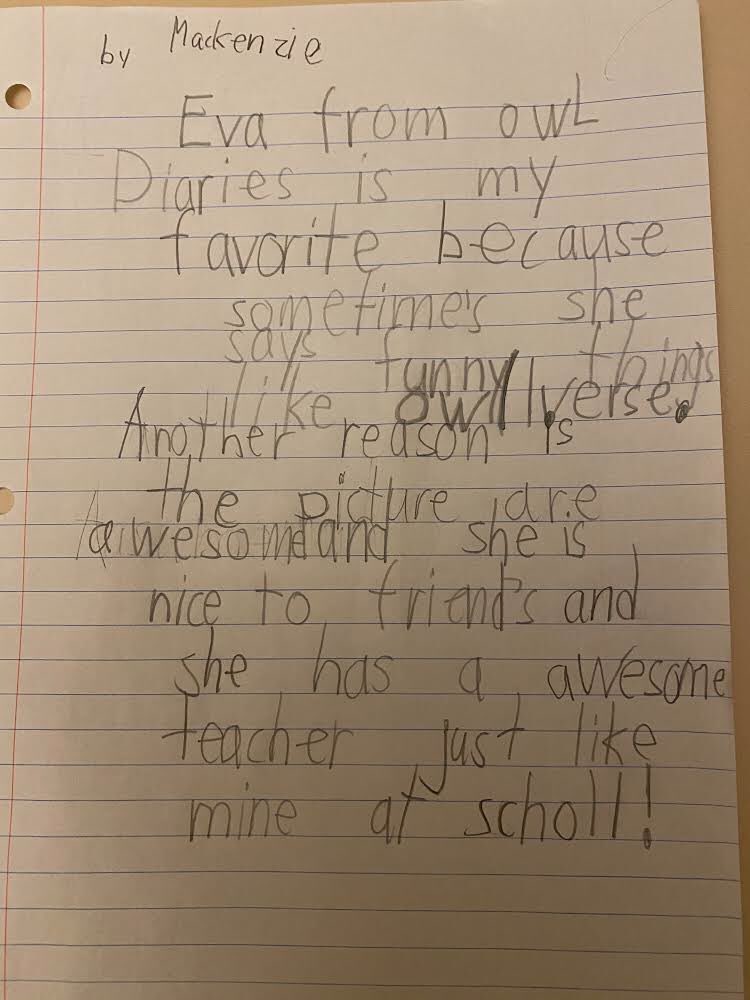 by Mackenzie
Eva from owL
Diaries is my
favorite because
sometime's she
says funny things
like owlverse.
Another reason is
the picture are
awesome and she is
nice to friend's and
she has a awesome
teacher just like
mine at scholl!